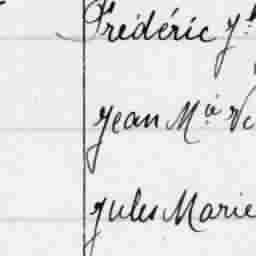 Frédéric J.h
Jean M.ie Vi
Jules Marie